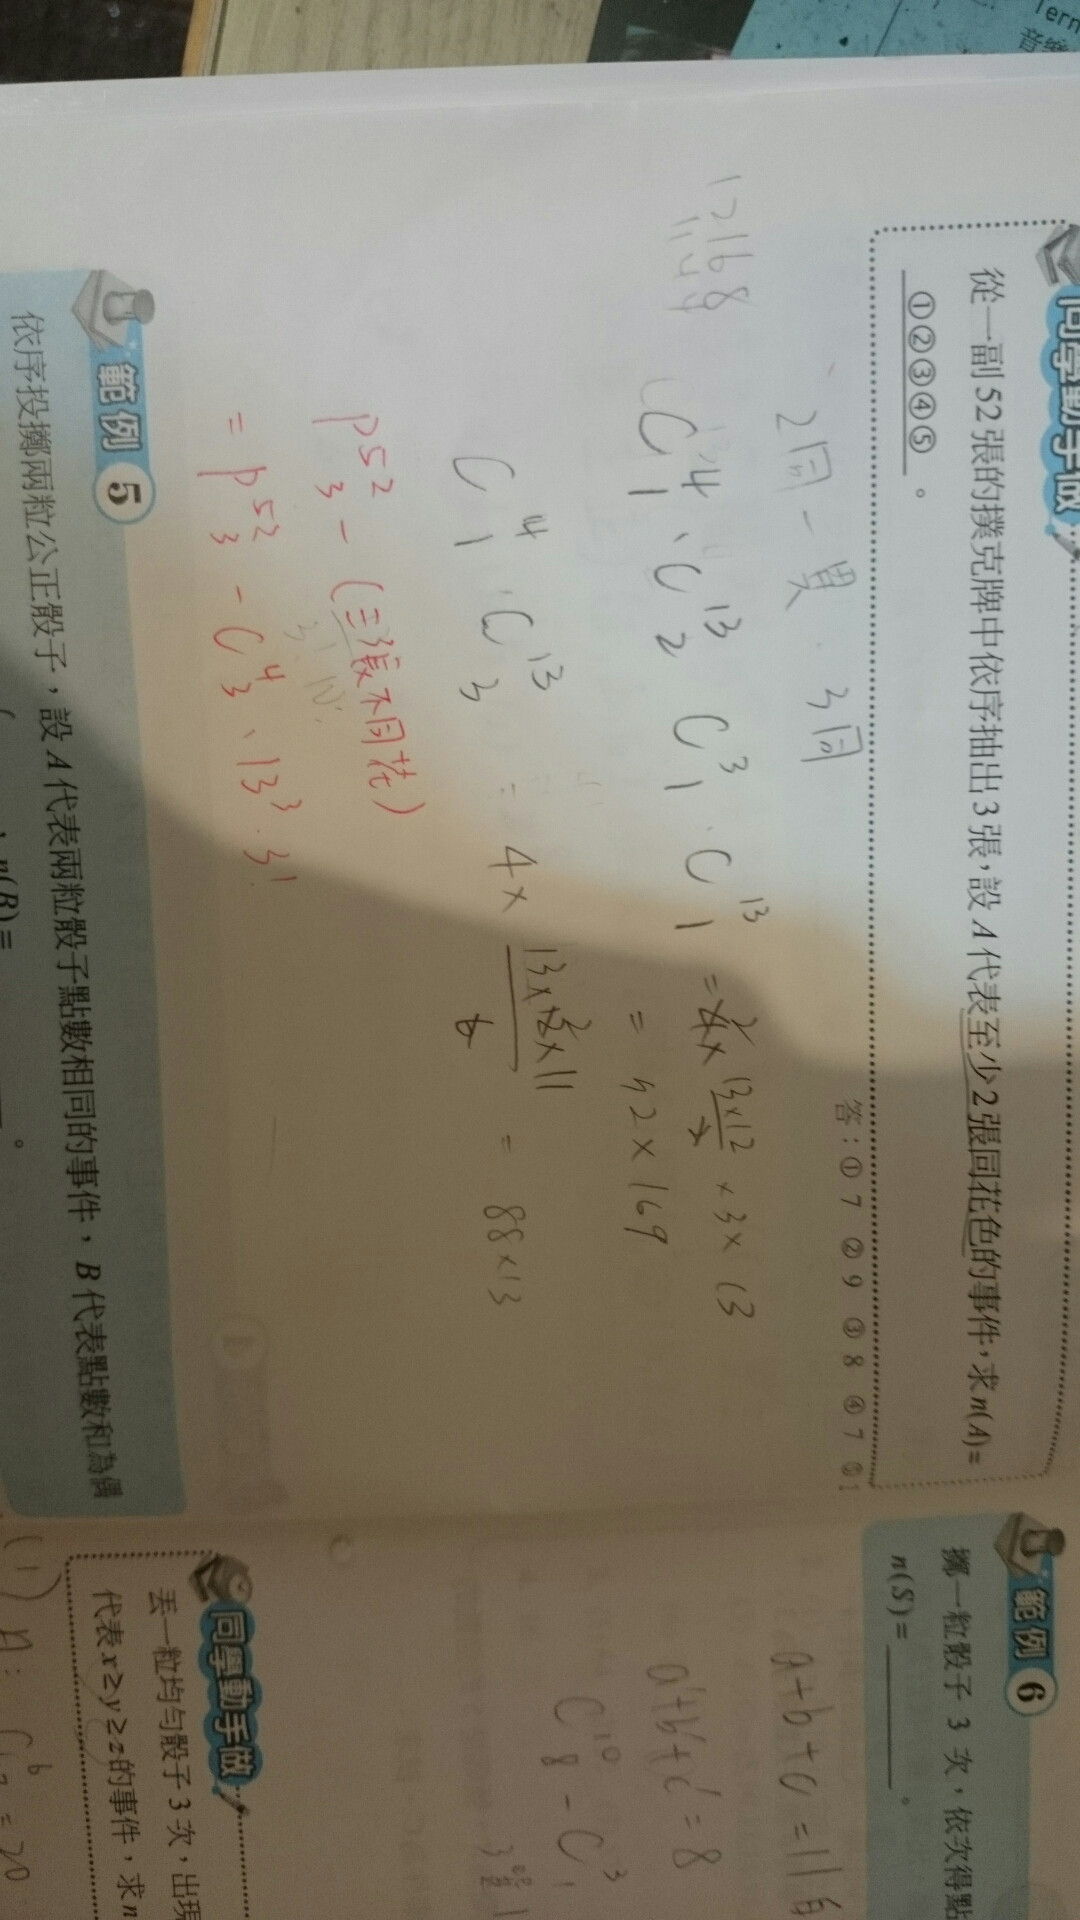 同學動手做
從一副52張的撲克牌中依序抽出3張,設A代表至少2張同花色的事件,求n(A)=
①②③④⑤。
答:①7 ②9 ③8 ④7
2同一異 3同
12168
C⁴₁·C¹³₂ C³₁·C¹³₁ = 4×13×12/2×3×13
= 52×169
C⁴₁·C¹³₃ = 4×13×12×11/6 = 88×13
P⁵²₃-(三張不同花)
=P⁵²₃-C⁴₃·13³·3!
範例 5
依序投擲兩粒公正骰子,設A代表兩粒骰子點數相同的事件,B代表點數和為偶
n(B)= 。
範例 6
擲一粒骰子3次,依次得點
n(S)= 。
a+b+c=11
a'+b'+c'=8
C¹⁰₈-C³₁
同學動手做
丟一粒均勻骰子3次,出現
代表x≥y≥z的事件,求n
(1) A:
=20